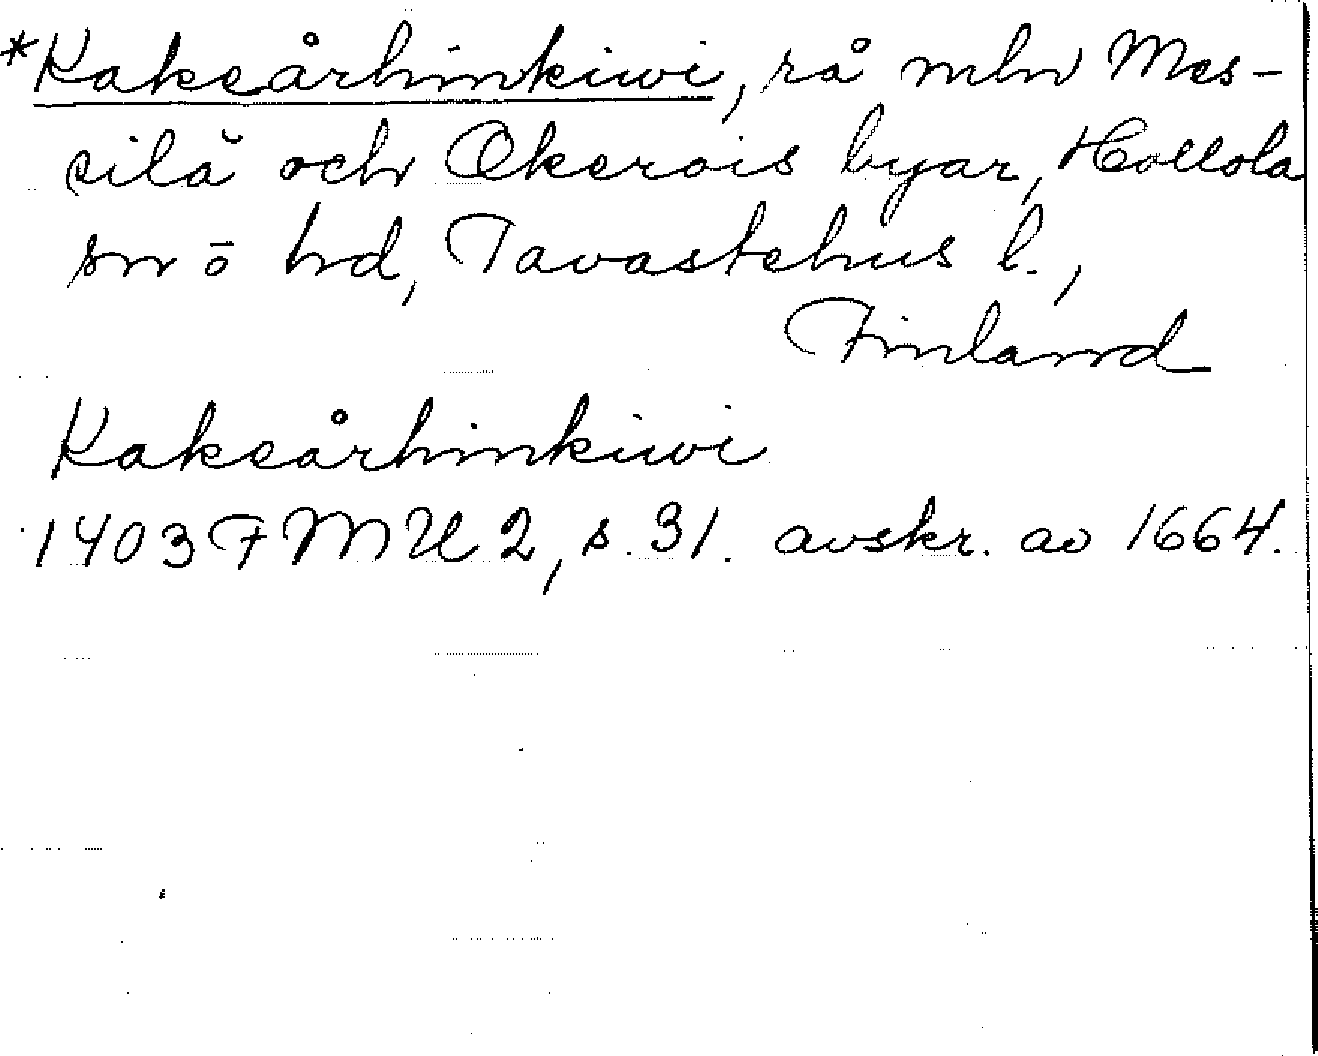 *Kaksårhinkiwi, rå mln Mes-
silä och Okerois byar, Hollola
sn ö hd, Tavastehus l.,
Finland
Kaksårhinkiwi
1403 FMU 2, s. 31. avskr. av 1664.